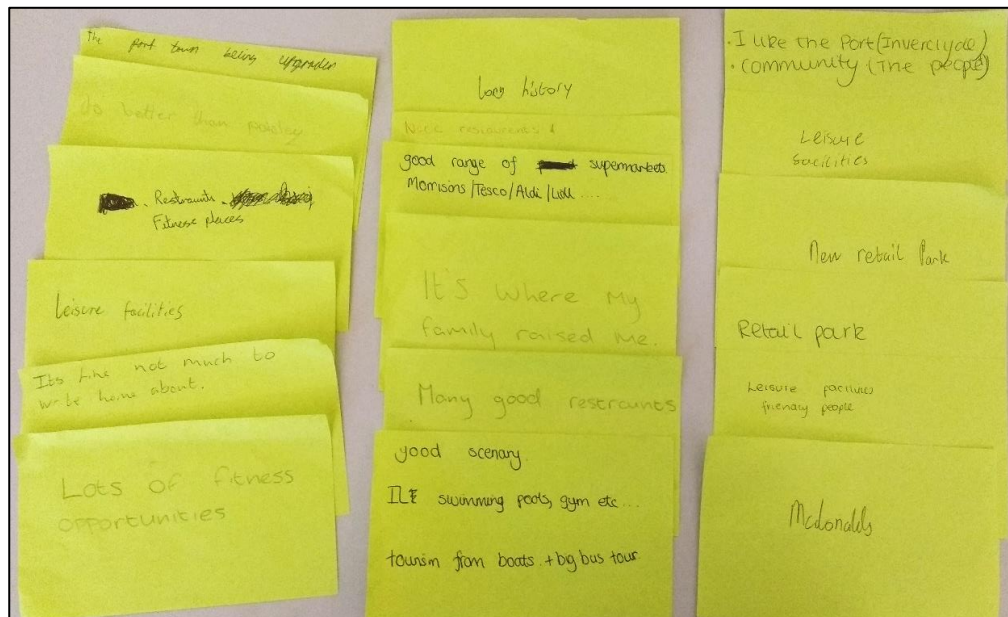 The port town being upgraded
do better than paisley
Restraunts
Fitness places
Leisure facilities
Its fine not much to
write home about.
Lots of fitness
opportunities
history
Nice restaurants
good range of supermarkets
Morrisons/Tesco/Aldi/Lidl....
It's where my
family raised me.
Many good restraunts
good scenary
swimming pools, gym etc...
tourism from boats + big bus tour
• I like The Port (Inverclyde)
• community (The people)
Leisure
facilities
New retail Park
Retail park
Leisure facilities
friendly people
Mcdonalds